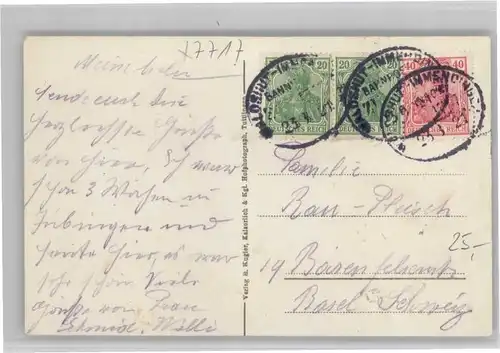 x7717
Meine Lieben
sende euch die
herzlichsten Grüsse
von hier, Ich war
schon 3 Wochen in
Tübingen und
heute hier, es war
sehr schön Viele
Grüsse von Frau
Schmid. Willi
Verlag R. Kugler, Kaiserlich & Kgl. Hofphotograph, Tuttlingen
20 20 40
WALDSHUT-IMMENDINGEN
BAHNPOST
WALDSHUT-IMMENDINGEN
BAHNPOST
WALDSHUT-IMMENDINGEN
Familie
Rau-Pleisch
19 Bärenfelserstr.
Basel Schweiz
25.-